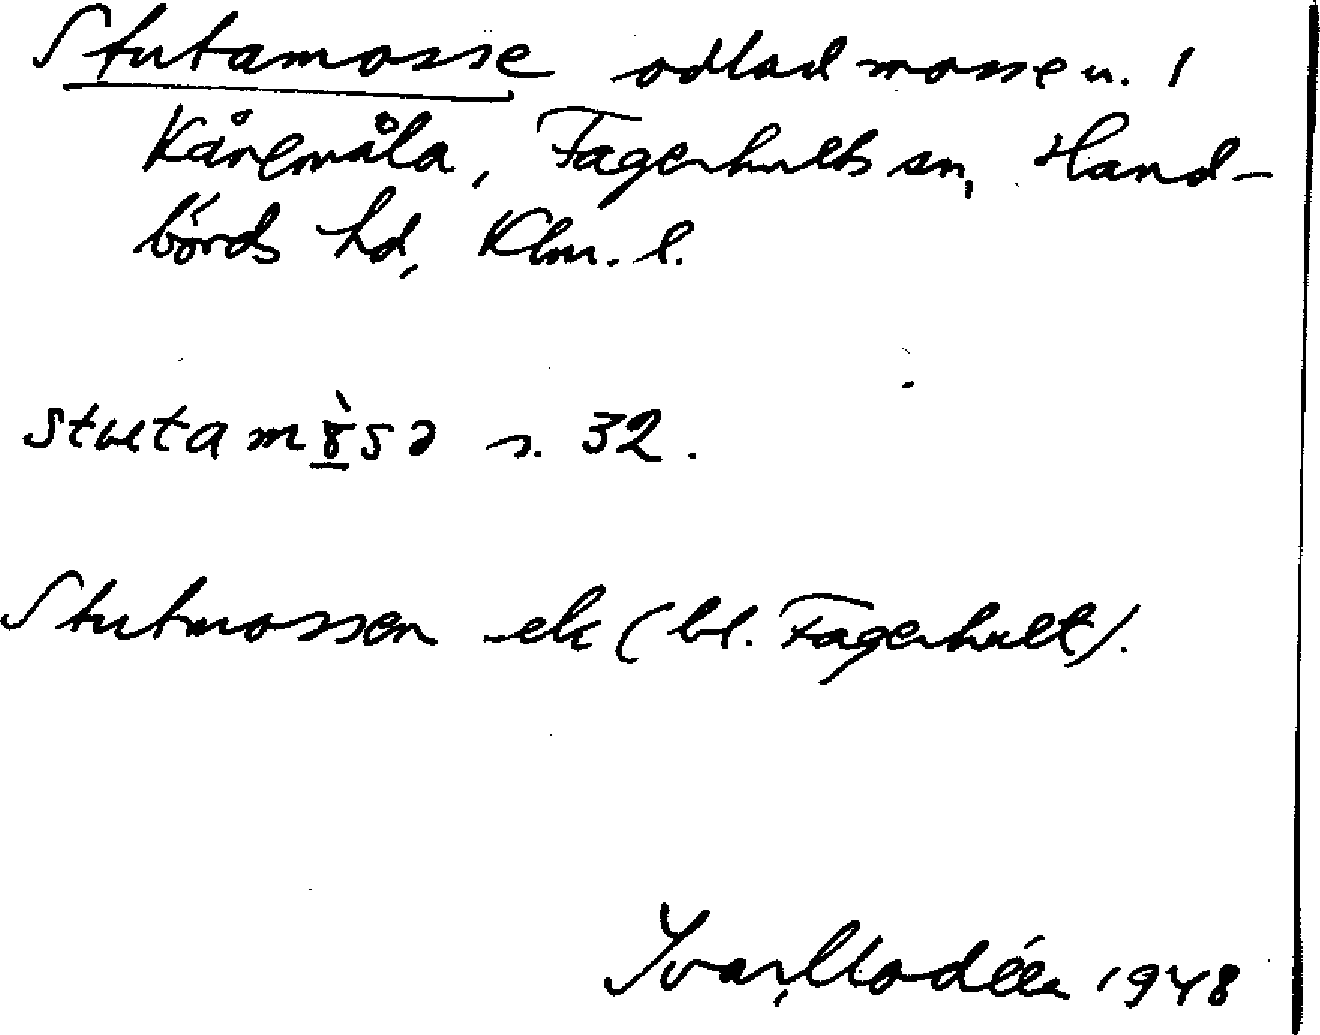 Stutamosse odlad mosse u. 1
Kåremåla, Fagerhults sn, Hand-
börds hd, Klm. l.
stutamɤ̲̀sə s. 32.
Stutmossen ek (bl. Fagerhult).
Ivar Modéer 1948